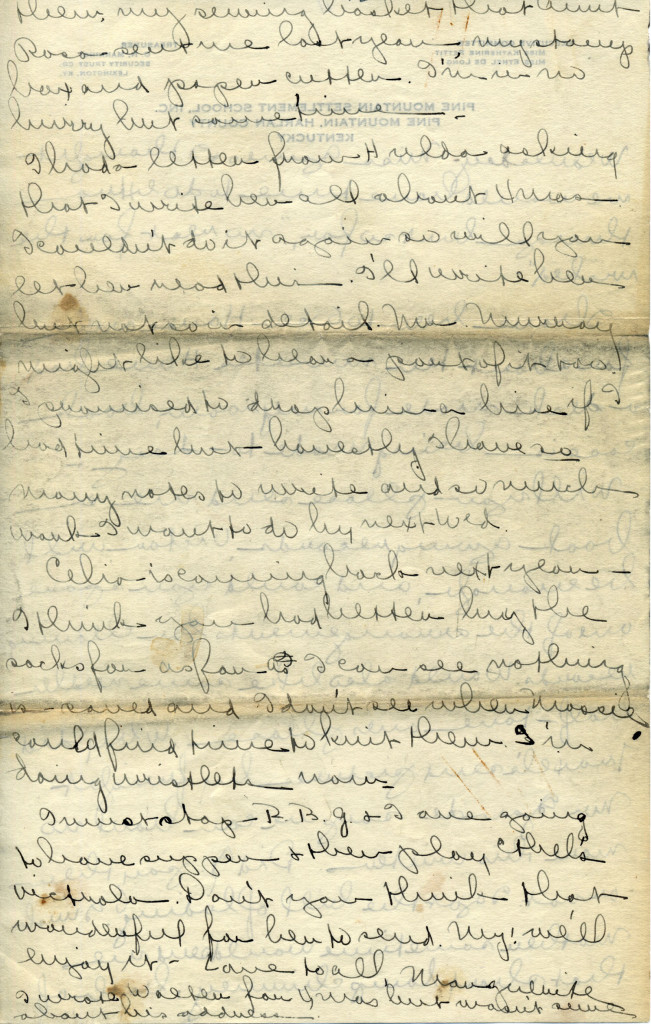 them, my sewing basket that Aunt
Rosa sent me last year, my stamp
box and paper cutter. I'm in no
hurry but sometime -
I had a letter from Hulda asking
that I write her all about Xmas
I couldn't do it again so will you
let her read this. I'll write her
but not so in detail. Mr. Murray
might like to hear a part of it too.
I promised to drop him a line if I
had time but - honestly I have so
many notes to write and so much
work I want to do by next Wed.
Celia is coming back next year -
I think you had better buy the
socks for as far as I can see nothing
is - saved and I don't see when Mossie
could find time to knit them. I'm
doing wristlets now -
I must stop - R. B. G. & I are going
to have supper & then play Ethel's
victrola. Don't you think that
wonderful for her to send. My! we'll
enjoy it - Love to all, Marguerite
I wrote Walter for Xmas but wasn't sure
about his address.
PINE MOUNTAIN SETTLEMENT SCHOOL, INC.
PINE MOUNTAIN, HARLAN COUNTY
KENTUCKY